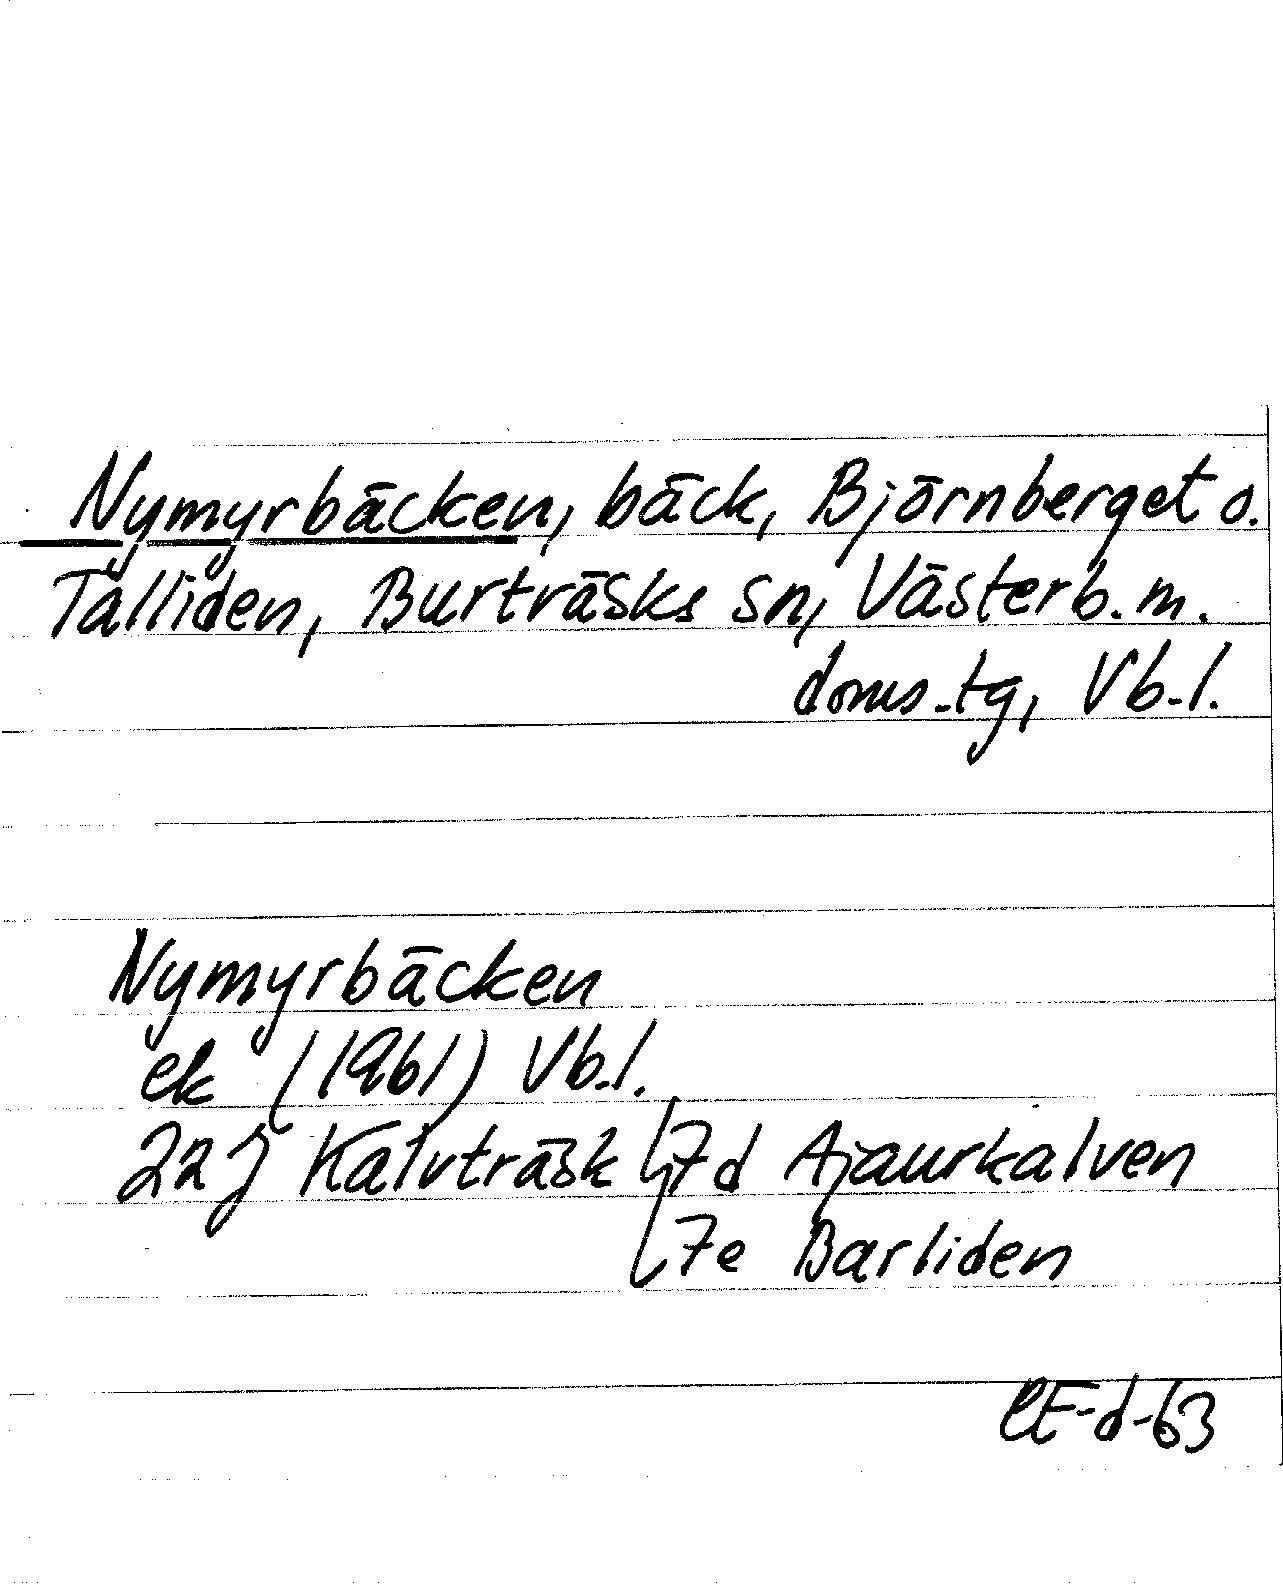 Nymyrbäcken, bäck, Björnberget o.
Talliden, Burträsks sn, Västerb. m.
doms. tg, Vb. l.
Nymyrbäcken
ek (1961) Vb. l.
22 J Kalvträsk 7d Ajaurkalven
7e Barliden
CE-d-63